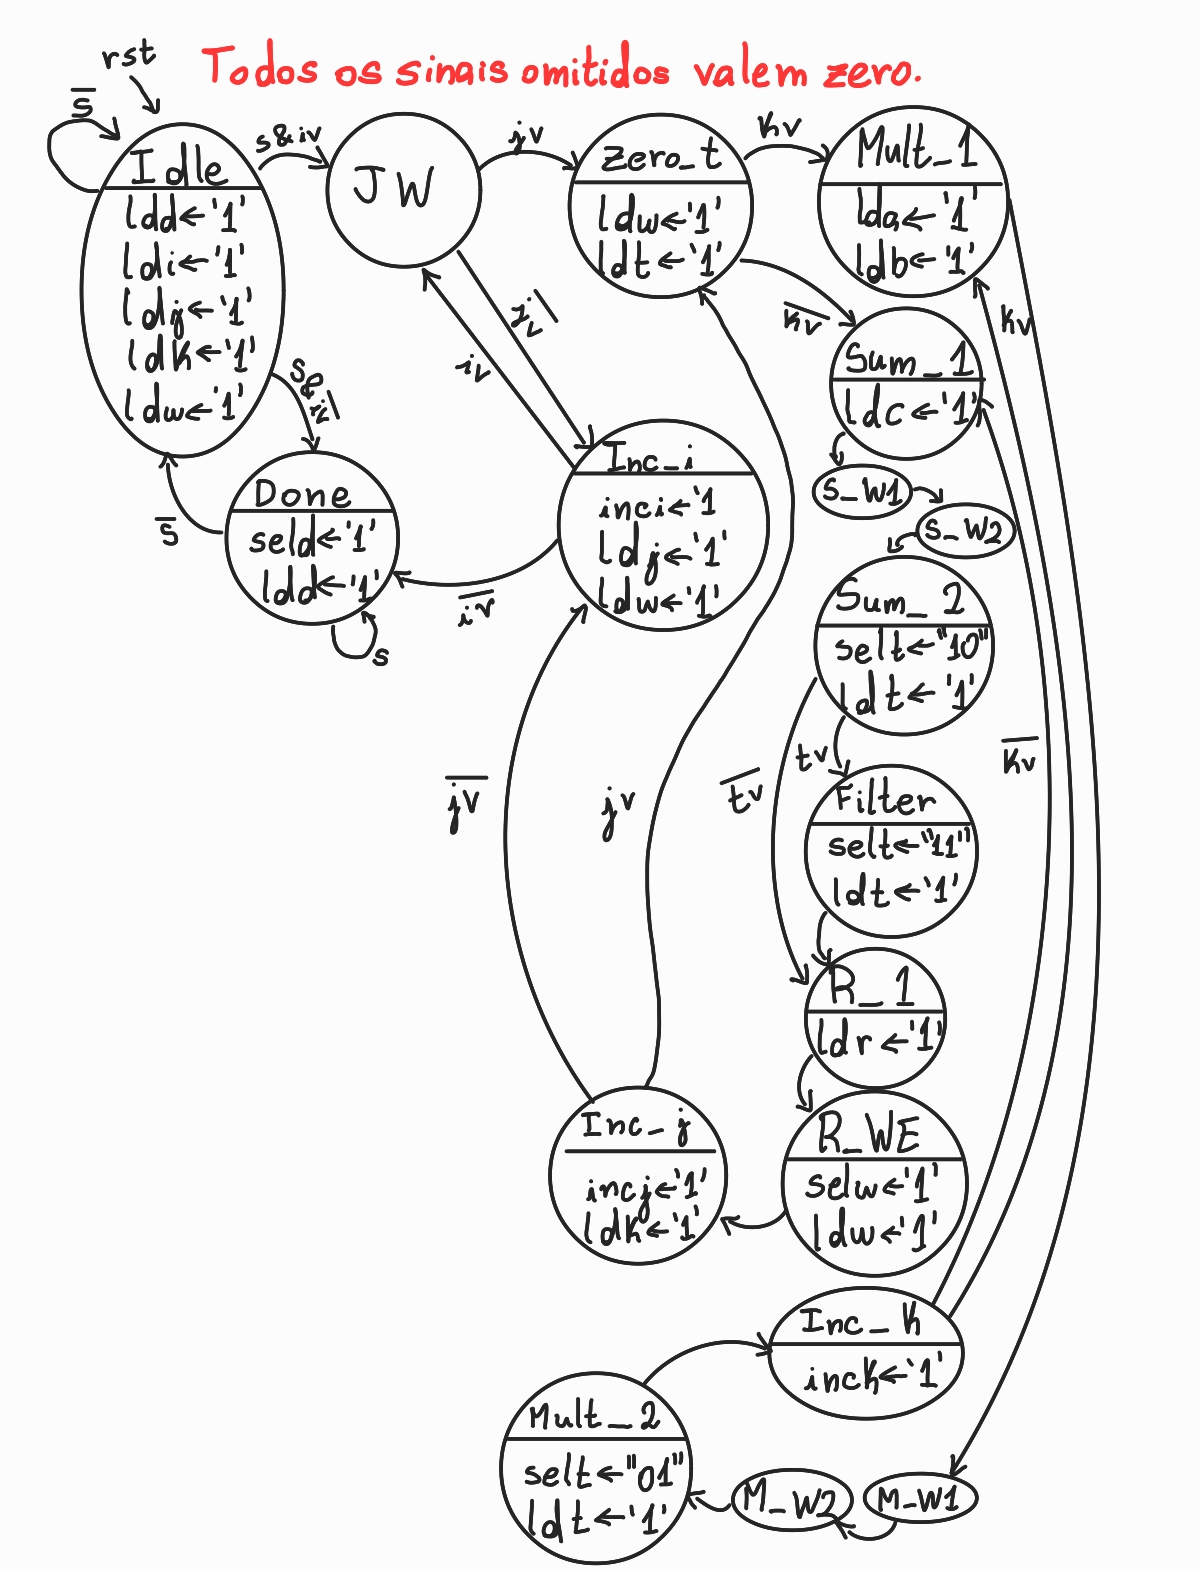 Todos os sinais omitidos valem zero.
rst
s̅
Idle
ldd←'1'
ldi←'1'
ldj←'1'
ldk←'1'
ldw←'1'
s&iv
JW
jv
Zero_t
ldw←'1'
ldt←'1'
kv
Mult_1
lda←'1'
ldb←'1'
j̅v̅
iv
k̅v̅
kv
Sum_1
ldc←'1'
S_W1
S_W2
s&i̅v̅
Done
seld←'1'
ldd←'1'
s̅
s
Inc_i
inci←'1
ldj←'1'
ldw←'1'
i̅v̅
Sum_2
selt←"10"
ldt←'1'
t̅v̅
tv
k̅v̅
j̅v̅
jv
Filter
selt←"11"
ldt←'1'
R_1
ldr←'1'
R_WE
selw←'1'
ldw←'1'
Inc_j
incj←'1'
ldk←'1'
Inc_k
inck←'1'
Mult_2
selt←"01"
ldt←'1'
M_W2
M_W1